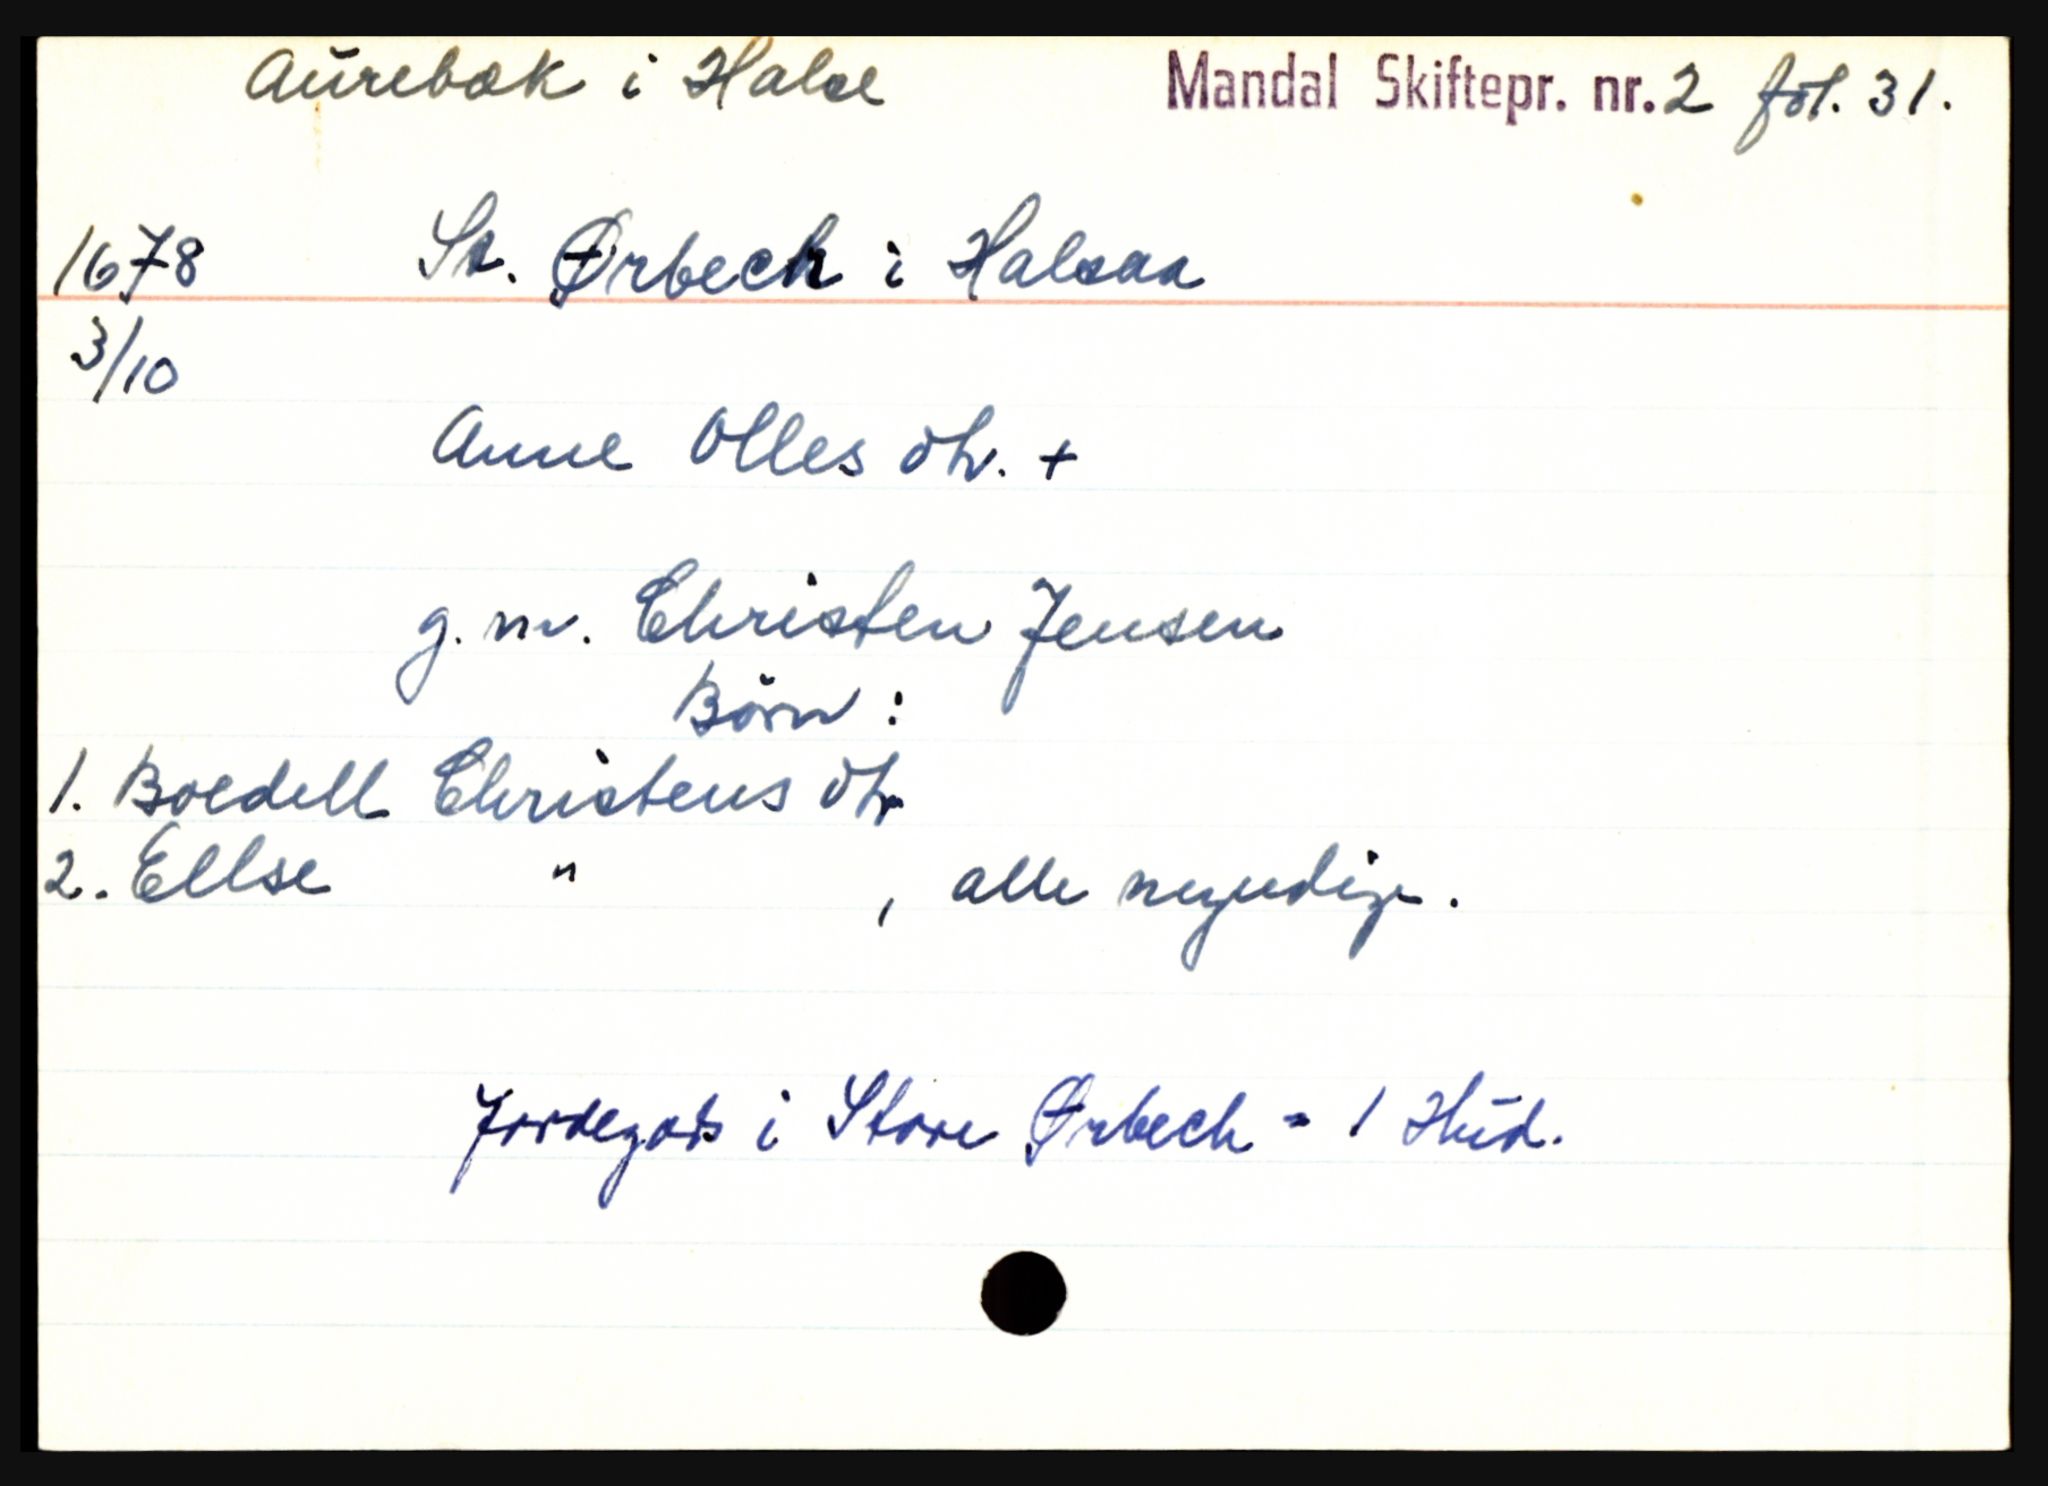 Aurebæk i Halse Mandal Skiftepr. nr. 2 fol. 31.
1678 St. Ørbech i Halsaa
3/10
Anne Olles dtr. +
g. m. Christen Jensen
Börn :
1. Boedell Christens dtr
2. Ellse " , alle myndige.
Jordegods i Store Ørbech = 1 Hud.